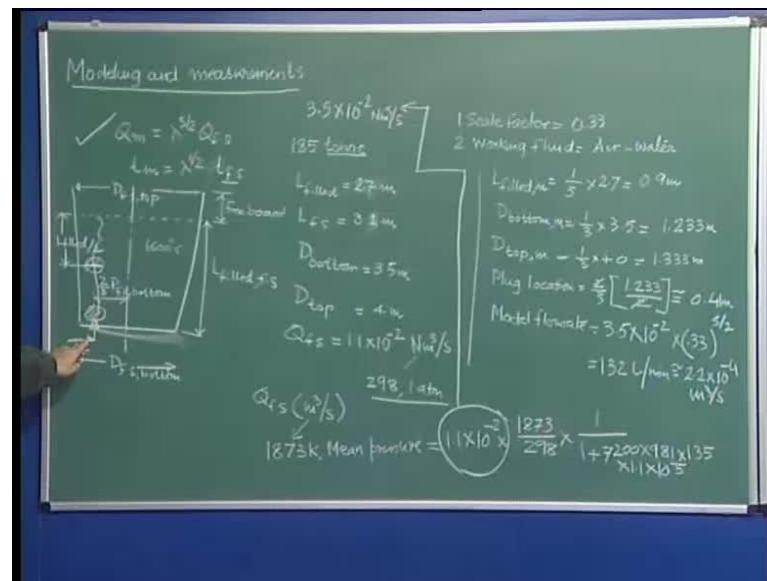 Modeling and measurements
Qm = λ^5/2 Qf.s
tm = λ^1/2 tf.s
Df, top
freeboard
1600°C
Lfilled, f.s
Df.s, bottom
3.5×10^-2 Nm³/s
185 tonne
Lfilled = 2.7m
Lf.s = 3.1m
Dbottom = 3.5m
Dtop = 4m
Qf.s = 1.1×10^-2 Nm³/s
298, 1 atm
Qf.s (m³/s)
1873K, Mean pressure = 1.1×10^-2 × 1873/298 × 1/1+7200×9.81×1.35×1.1×10^-5
1 Scale factor = 0.33
2 Working fluid = Air-Water
Lfilled,m = 1/3 × 2.7 = 0.9m
Dbottom,m = 1/3 × 3.5 = 1.233m
Dtop,m = 1/3 × 4.0 = 1.333m
Plug location = [1.233/2] ≅ 0.4m
Model flowrate = 3.5×10^-2 × (.33)^5/2
= 132 L/min ≅ 22×10^-4
m³/s